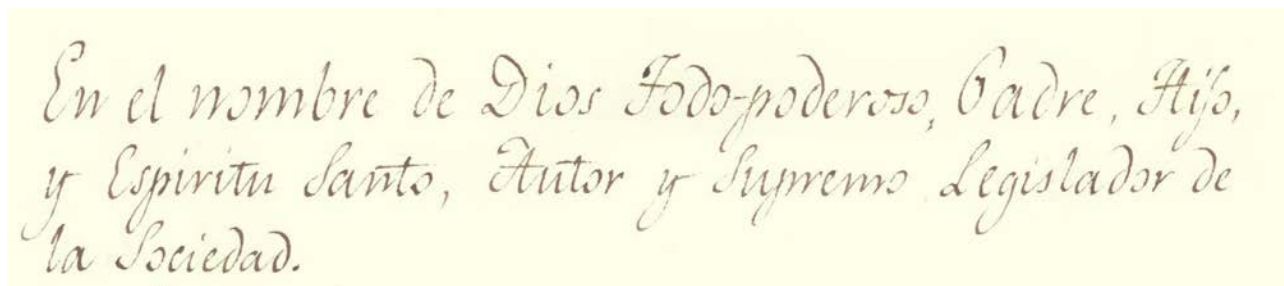 En el nombre de Dios Todo-poderoso, Padre, Hijo,
y Espiritu Santo, Autor y Supremo Legislador de
la Sociedad.